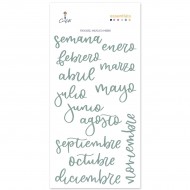 semana
enero
febrero
marzo
abril
mayo
julio
junio
agosto
septiembre
octubre
noviembre
diciembre